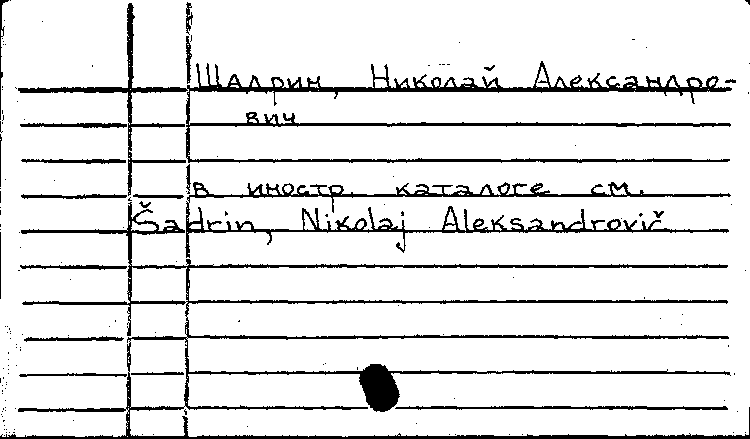 Шадрин, Николай Александро-
вич
в иностр. каталоге см.
Šadrin, Nikolaj Aleksandrovič